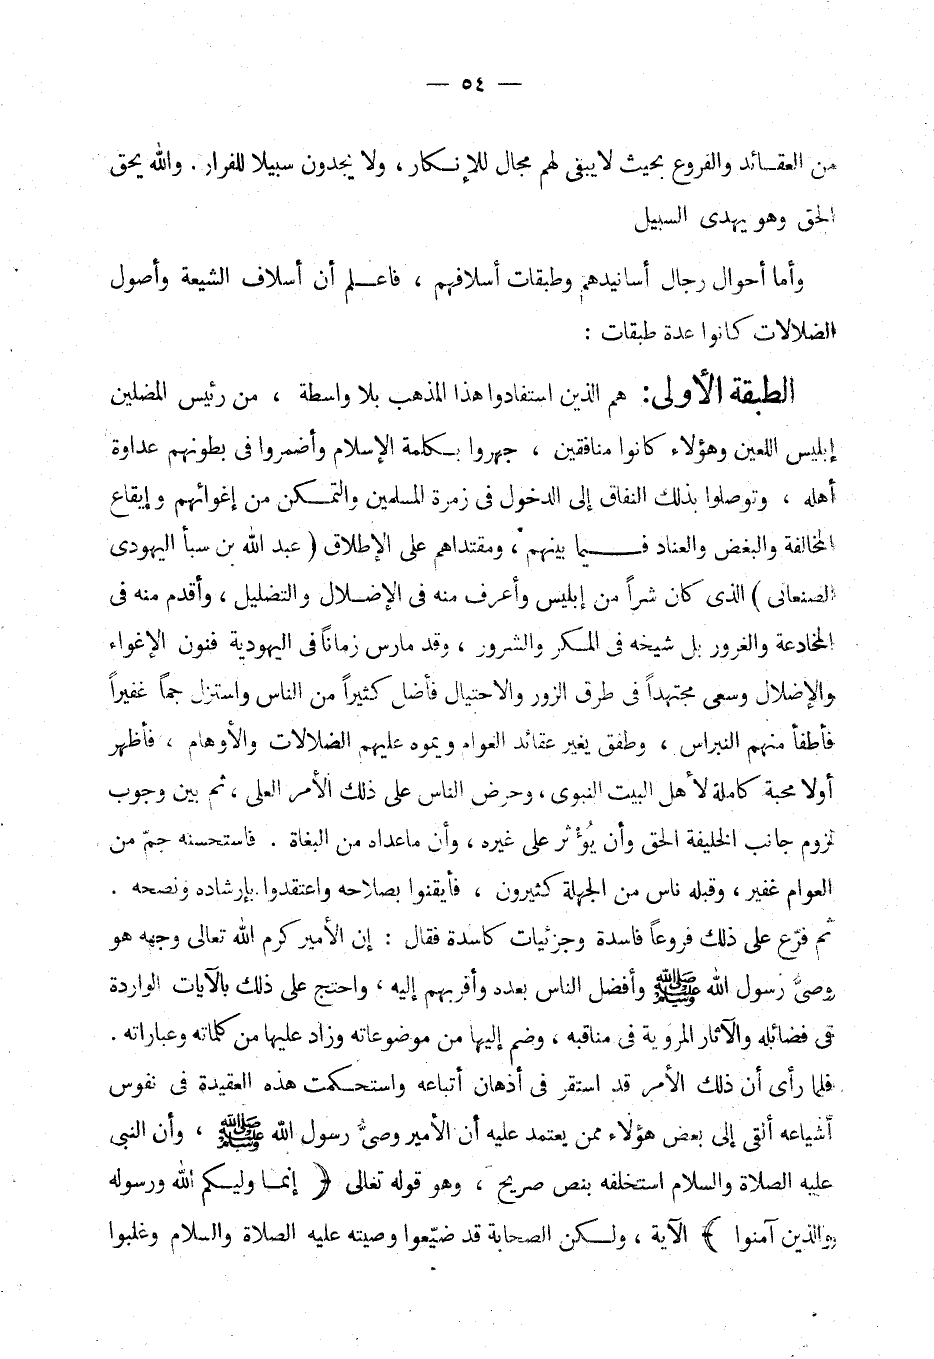 — ٥٤ —
من العقائد والفروع بحيث لا يبقى لهم مجال للإنكار ، ولا يجدون سبيلا للفرار . والله يحق
الحق وهو يهدى السبيل
وأما أحوال رجال أسانيدهم وطبقات أسلافهم ، فاعلم أن أسلاف الشيعة وأصول
الضلالات كانوا عدة طبقات :
الطبقة الأولى: هم الذين استفادوا هذا المذهب بلا واسطة ، من رئيس المضلين
إبليس اللعين وهؤلاء كانوا منافقين ، جهروا بكلمة الإسلام وأضمروا فى بطونهم عداوة
أهله ، وتوصلوا بذلك النفاق إلى الدخول فى زمرة المسلمين والتمكن من إغوائهم وإيقاع
المخالفة والبغض والعناد فيما بينهم ، ومقتداهم على الإطلاق ( عبد الله بن سبأ اليهودى
الصنعانى ) الذى كان شراً من إبليس وأعرف منه فى الإضلال والتضليل ، وأقدم منه فى
المخادعة والغرور بل شيخه فى المكر والشرور ، وقد مارس زماناً فى اليهودية فنون الإغواء
والإضلال وسعى مجتهداً فى طرق الزور والاحتيال فأضل كثيراً من الناس واستزل جماً غفيراً
فأطفأ منهم النبراس ، وطفق يغير عقائد العوام ويموه عليهم الضلالات والأوهام ، فأظهر
أولا محبة كاملة لأهل البيت النبوى ، وحرض الناس على ذلك الأمر العلى ، ثم بين وجوب
لزوم جانب الخليفة الحق وأن يُؤثر على غيره ، وأن ماعداه من البغاة . فاستحسنه جمّ من
العوام غفير ، وقبله ناس من الجهلة كثيرون ، فأيقنوا بصلاحه واعتقدوا بإرشاده ونصحه .
ثم فرّع على ذلك فروعاً فاسدة وجزئيات كاسدة فقال : إن الأمير كرم الله تعالى وجهه هو
وصىُّ رسول الله ﷺ وأفضل الناس بعده وأقربهم إليه ، واحتج على ذلك بالآيات الواردة
فى فضائله والآثار المروية فى مناقبه ، وضم إليها من موضوعاته وزاد عليها من كلماته وعباراته .
فلما رأى أن ذلك الأمر قد استقر فى أذهان أتباعه واستحكمت هذه العقيدة فى نفوس
أشياعه ألقى إلى بعض هؤلاء ممن يعتمد عليه أن الأمير وصىُّ رسول الله ﷺ ، وأن النبى
عليه الصلاة والسلام استخلفه بنص صريح ، وهو قوله تعالى ﴿ إنما وليكم الله ورسوله
والذين آمنوا ﴾ الآية ، ولكن الصحابة قد ضيّعوا وصيته عليه الصلاة والسلام وغلبوا